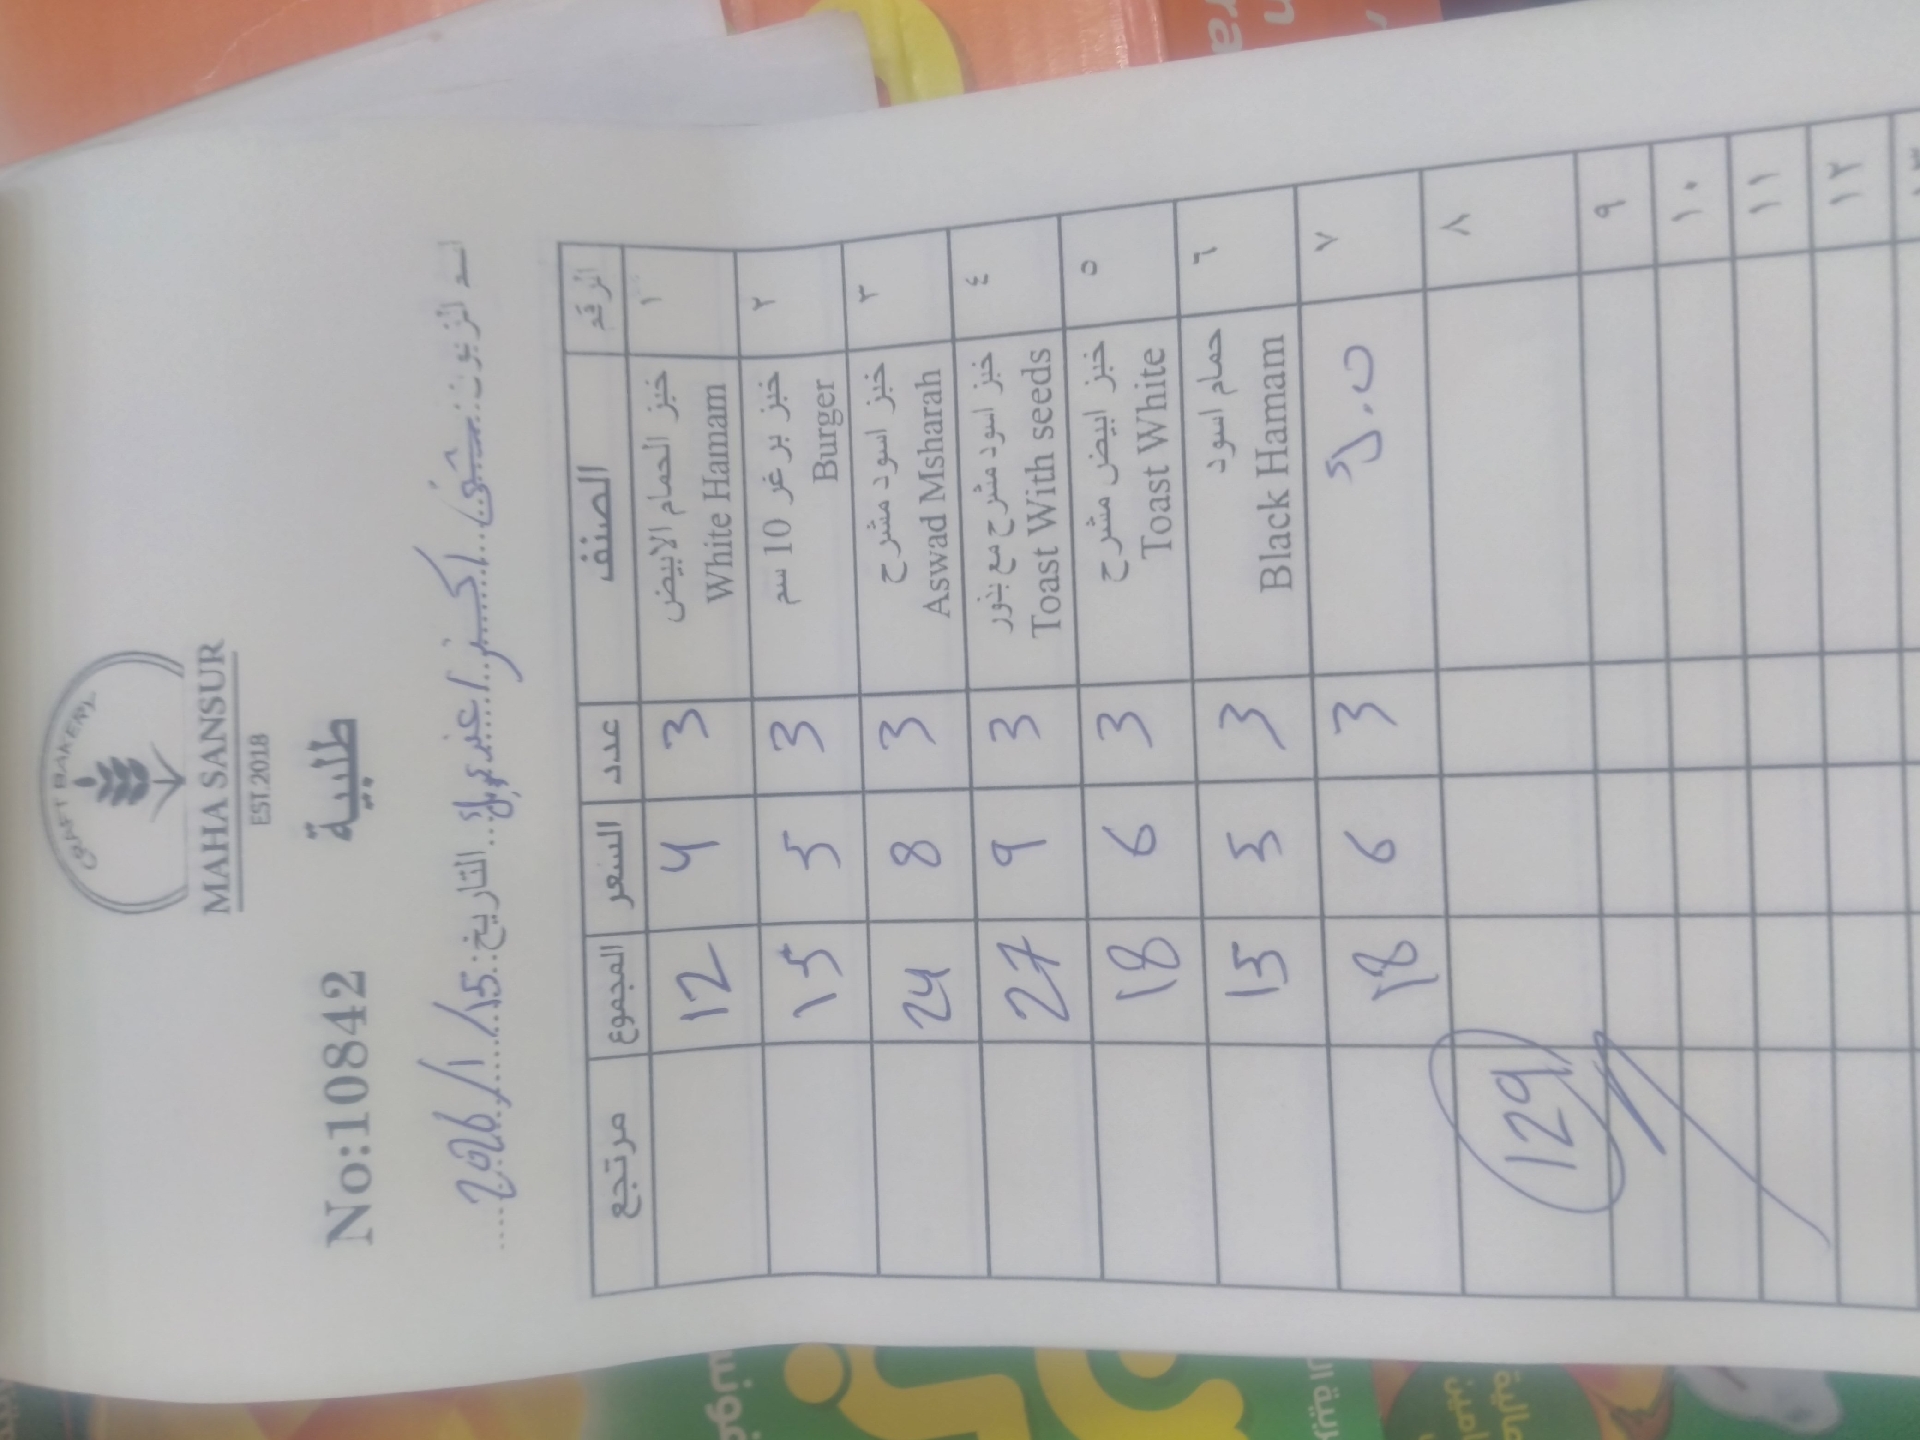 CRAFT BAKERY
MAHA SANSUR
EST.2018
No:10842 طلبية
اسم الزبون: التاريخ: 2026/1/15
الرقم الصنف عدد السعر المجموع مرتجع
١ خبز الحمام الابيض 3 4 12
White Hamam
٢ خبز برغر 10 سم 3 5 15
Burger
٣ خبز اسود مشرح 3 8 24
Aswad Msharah
٤ خبز اسود مشرح مع بذور 3 9 27
Toast With seeds
٥ خبز ابيض مشرح 3 6 18
Toast White
٦ حمام اسود 3 5 15
Black Hamam
٧ 3 6 18
٨ 129
٩
١٠
١١
١٢
١٣